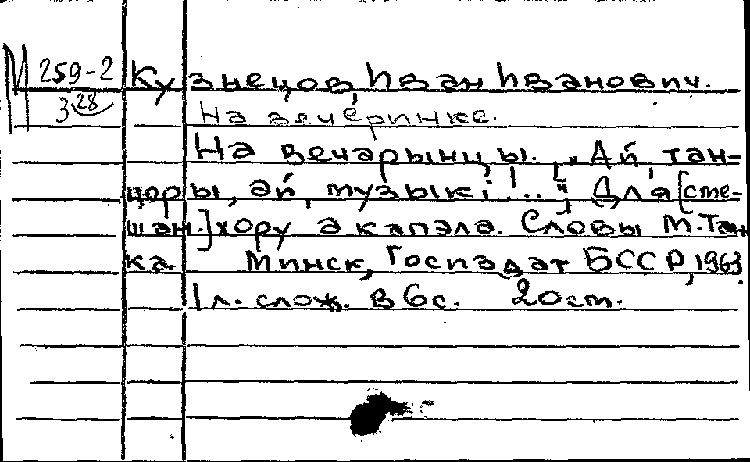 М 259-2 Кузнецов, Иван Иванович.
3 28 На вечеринке.
На вечарынцы. „Ай, тан-
цоры, ай, музыкі!..."[Для [сме-
шан.] хору а капэла. Словы М. Тан-
ка. Минск, Госпздат БССР, 1963.
1 л. слож. в 6 с. 20 ст.